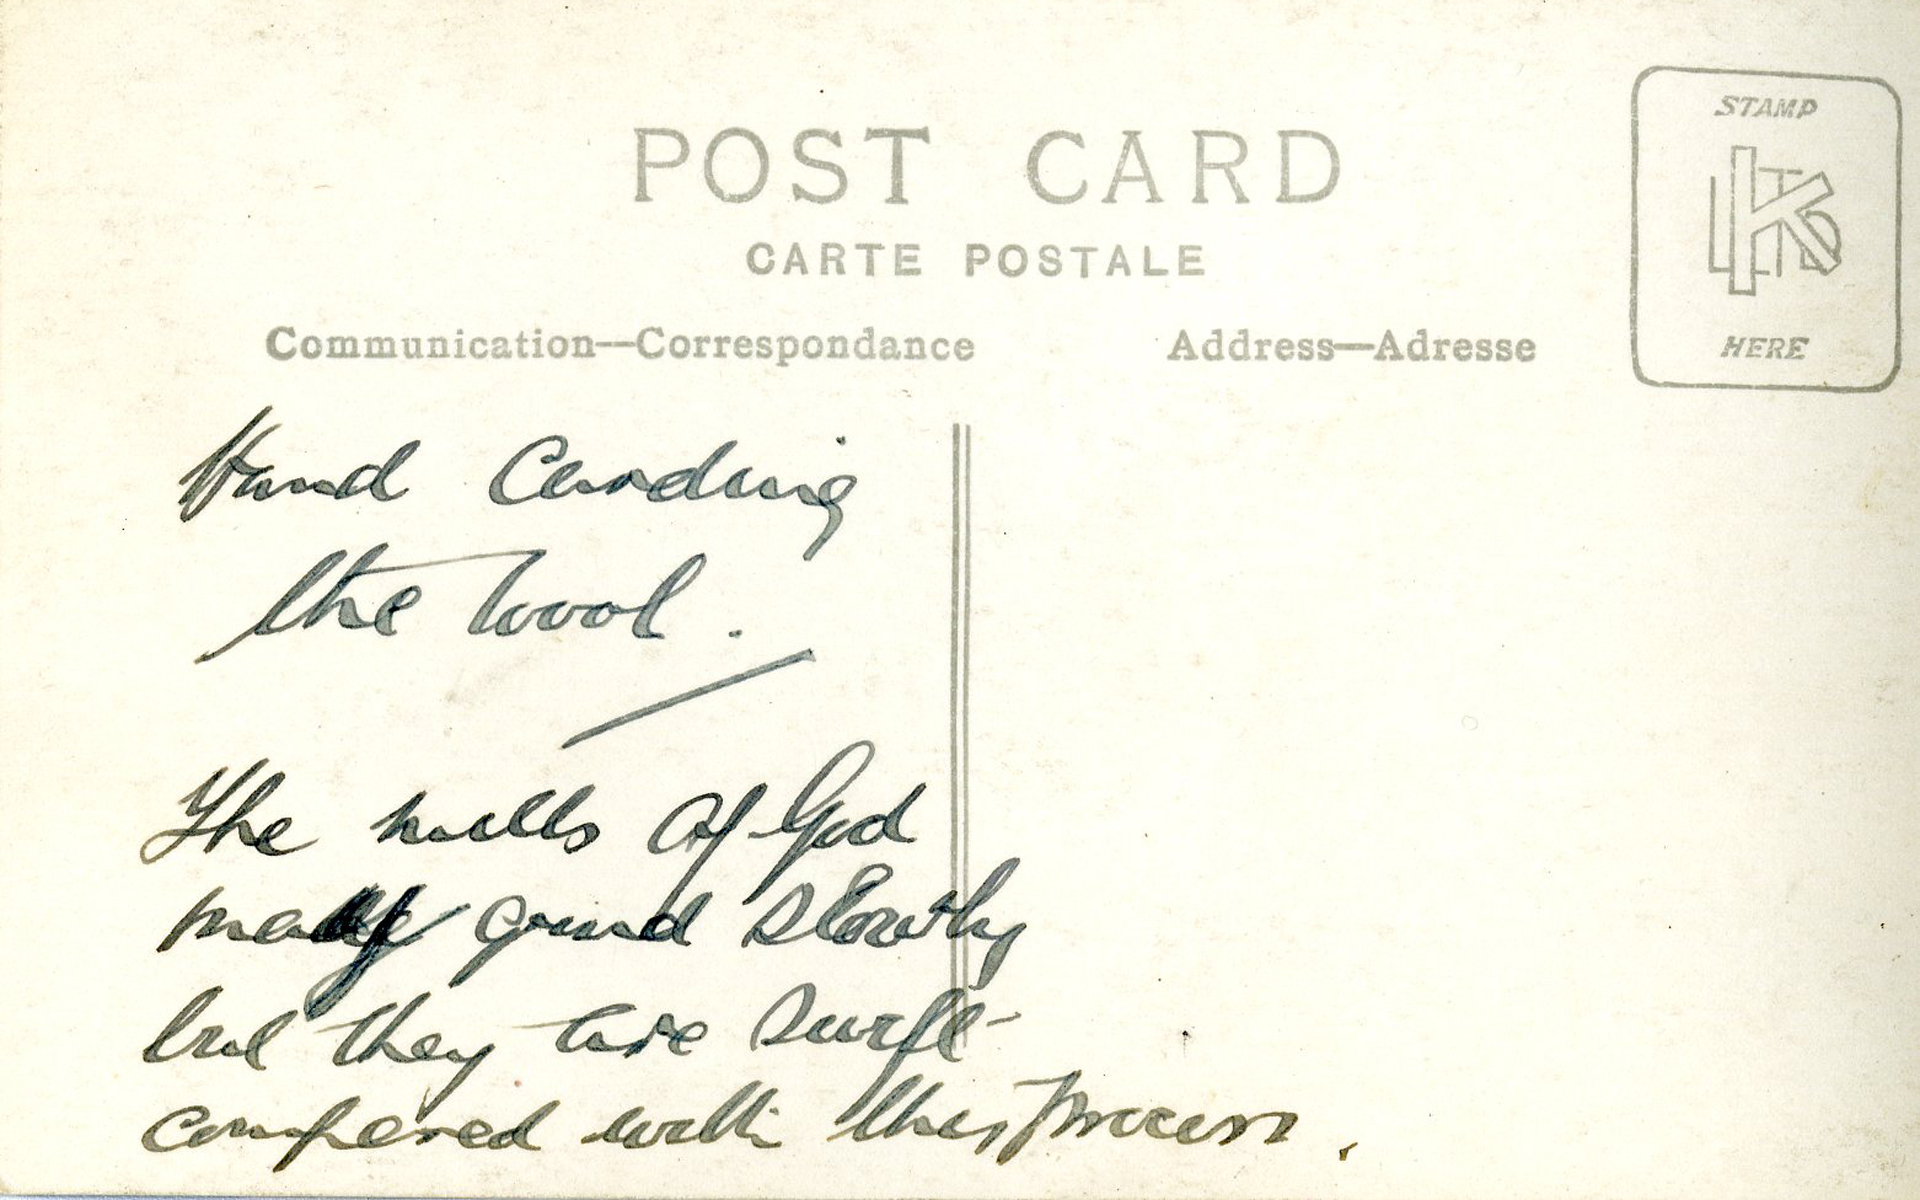 POST CARD
STAMP
CARTE POSTALE
K LTD
HERE
Communication—Correspondance
Address—Adresse
Hand Carding
the wool.
The mills of God
may grind slowly
but they are swift
compared with this process.